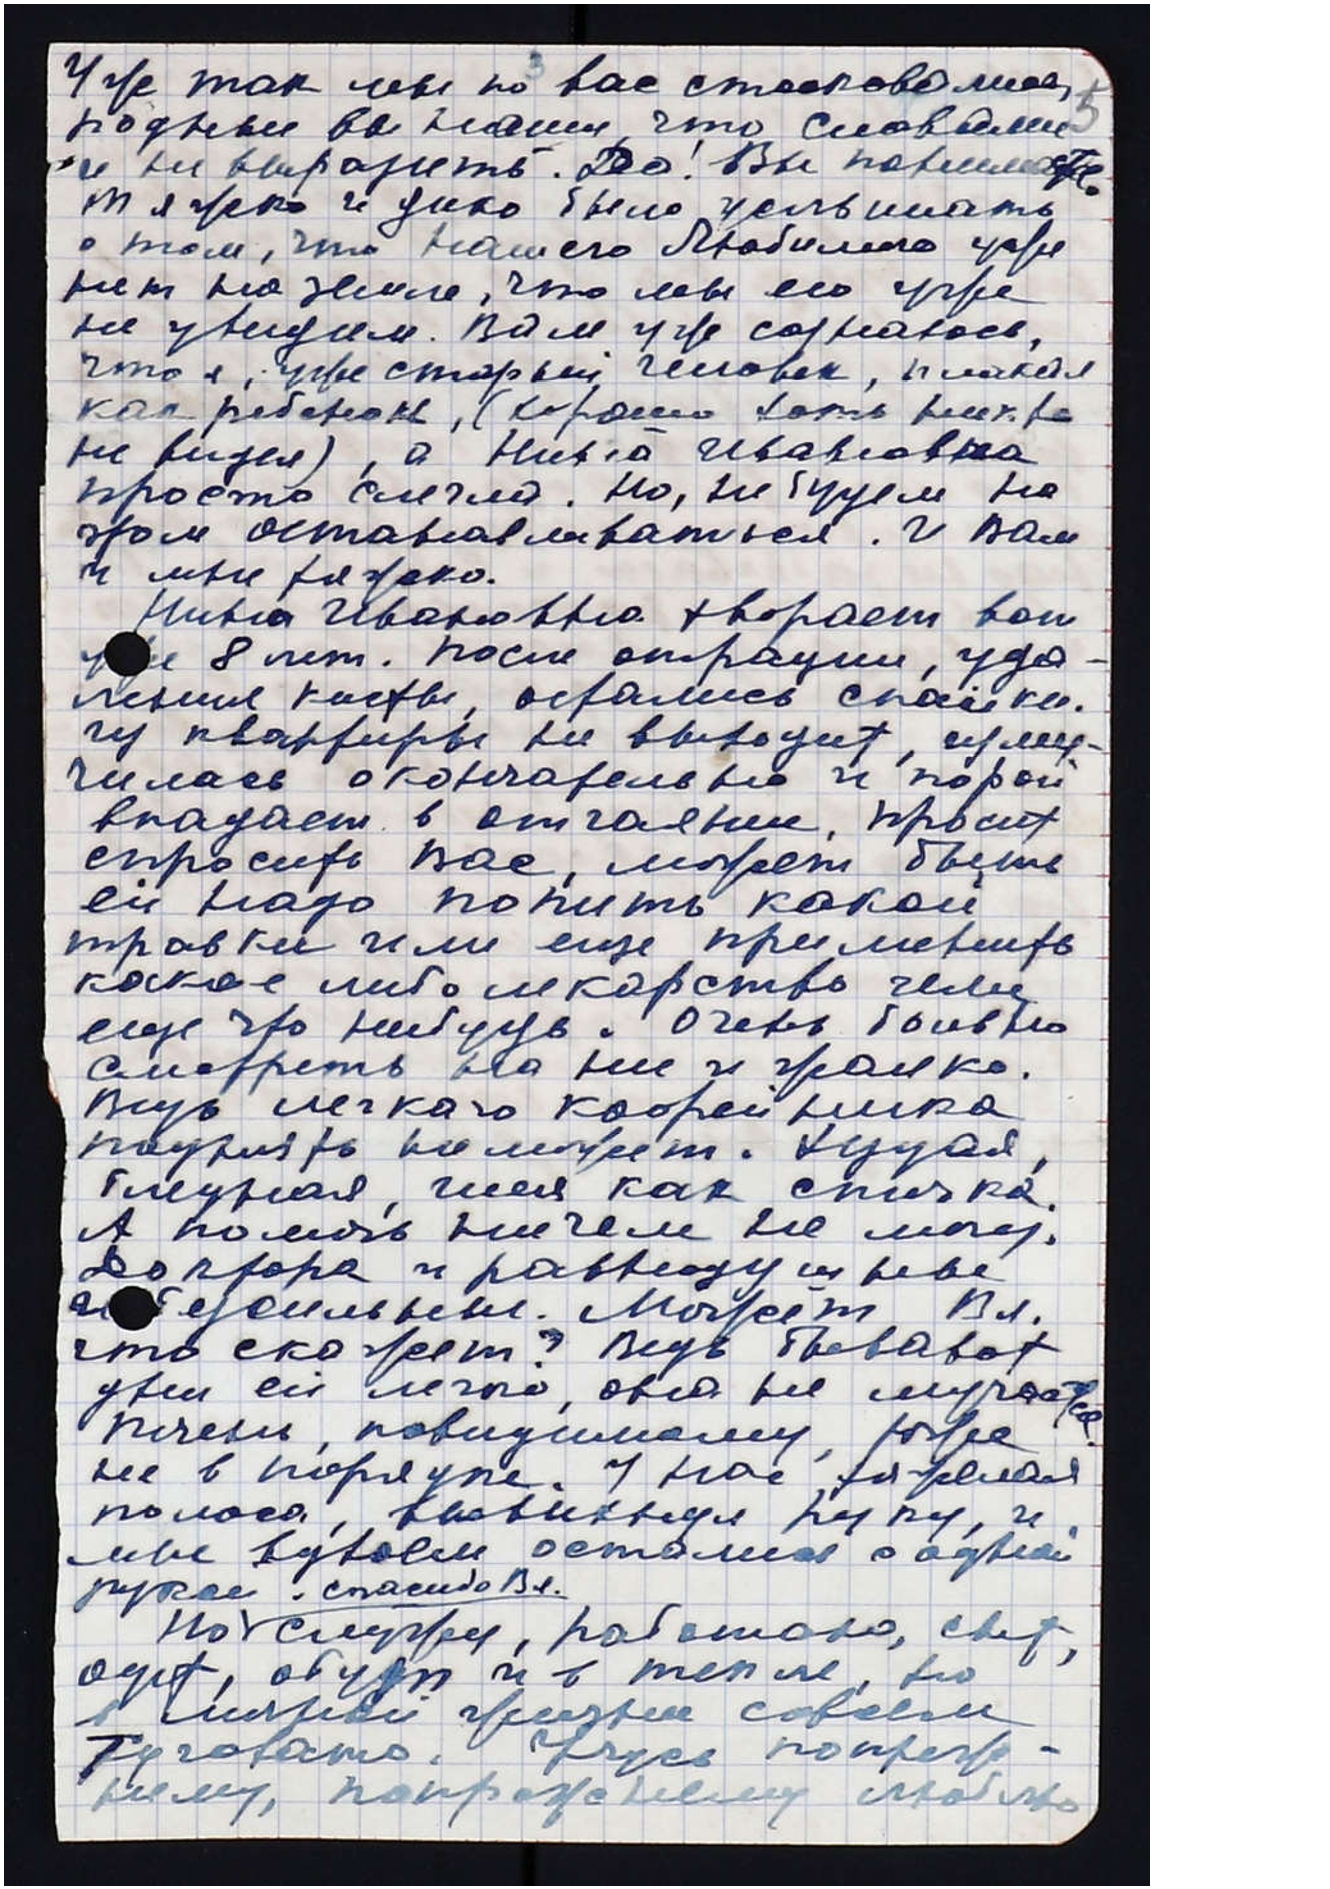 3
5
Уже так мы по вас стосковались,
родные вы наши, что словами
и не выразить. Да! Вы понимаете.
Тяжко и дико было услышать
о том, что нашего Любимого уже
нет на земле, что мы его уже
не увидим. Вам уже сознаюсь,
что я, уже старый человек, плакал
как ребенок, (хорошо хоть никто
не видел), а Нина Ивановна
просто слегла. Но, не будем на
этом останавливаться. И Вам
и мне тяжко.
Нина Ивановна хворает вот
уже 8 лет. После операции, уда-
ления кисты, остались спайки.
Из квартиры не выходит, изму-
чилась окончательно и порой
впадает в отчаянии, просит
спросить Вас, может быть
ей надо попить какой
травки или еще применить
какое либо лекарство или
еще что нибудь. Очень больно
смотреть на нее и жалко.
Ведь легкаго кофейника
поднять не может. Худая,
бледная, шея как спичка.
А помочь ничем не могу.
Доктора и равнодушные
и безсильные. Может Вл.
что скажет? Ведь бывают
дни ей легко, она не мучается.
Печень, повидимому, тоже
не в порядке. У нас тяжелая
полоса, вывихнул руку, и
мы вдвоем остались с одной
рукой. спасибо Вл.
Но служу, работаю, сыт,
одет, обут и в тепле, но
в личной жизни совсем
туговато. Учусь попреж-
нему, попрежнему люблю